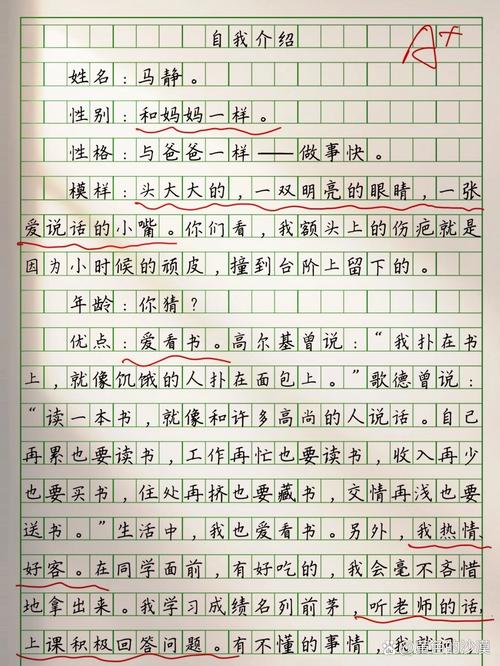 自我介绍
A+
姓名：马静。
性别：和妈妈一样。
性格：与爸爸一样——做事快。
模样：头大大的，一双明亮的眼睛，一张
爱说话的小嘴。你们看，我额头上的伤疤就是
因为小时候的顽皮，撞到台阶上留下的。
年龄：你猜？
优点：爱看书。高尔基曾说：“我扑在书
上，就像饥饿的人扑在面包上。”歌德曾说：
“读一本书，就像和许多高尚的人说话。自己
再累也要读书，工作再忙也要读书，收入再少
也要买书，住处再挤也要藏书，交情再浅也要
送书。”生活中，我也爱看书。另外，我热情
好客。在同学面前，有好吃的，我会毫不吝惜
地拿出来。我学习成绩名列前茅，听老师的话，
上课积极回答问题。有不懂的事情，我就问